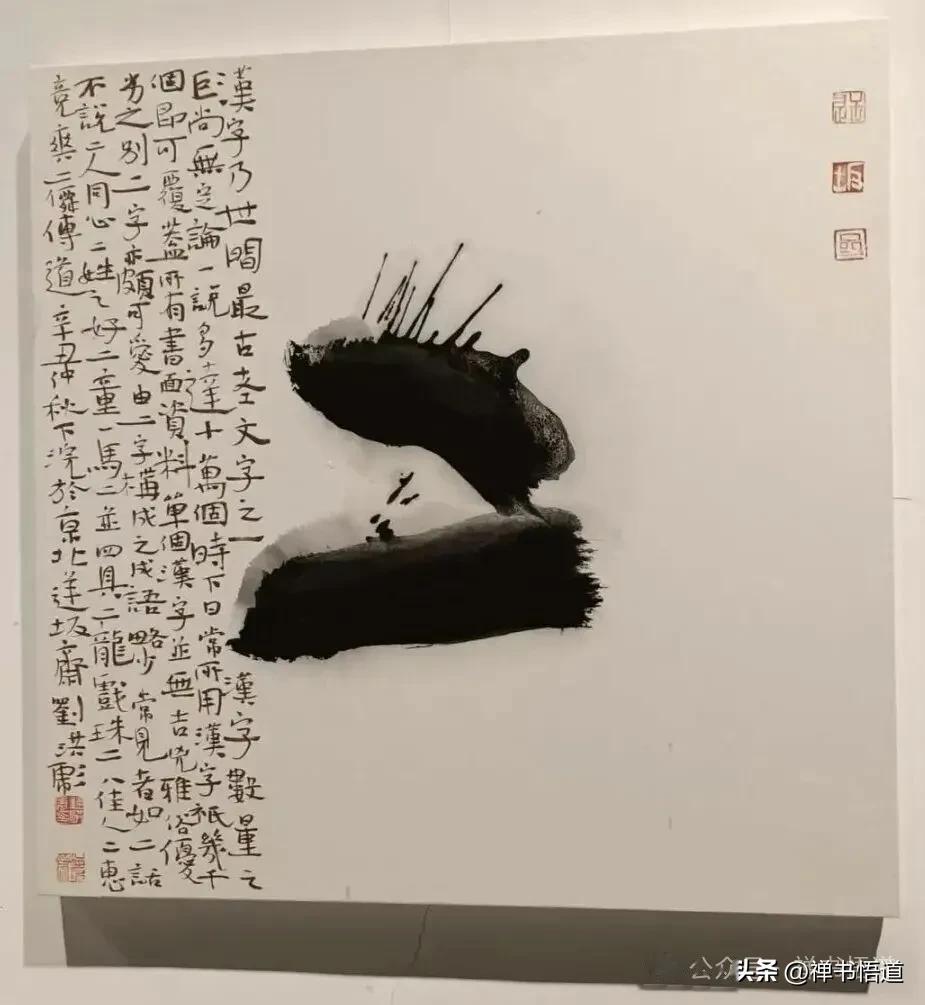 漢字乃世間最古老文字之一 漢字數量之
巨尚無定論一說多達十萬個時下日常所用漢字祇幾千
個即可覆蓋所有書面資料單個漢字並無吉兇雅俗優
劣之別二字亦頗可愛由二字構成之成語略少常見者如二話
不說二人同心二姓之好二童一馬二並四具二龍戲珠二八佳人二惠
竞爽二僊傳道辛丑仲秋下浣於京北逆坂齋劉洪彪
头条 @禅书悟道